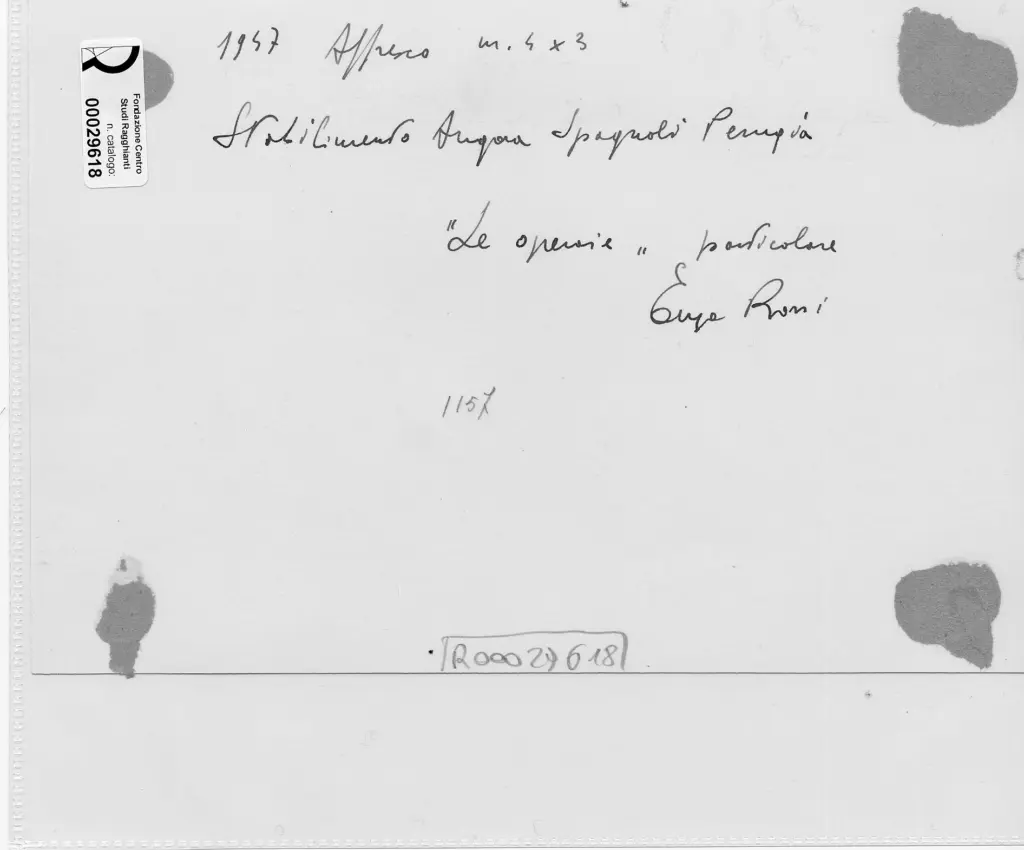 1947 Affresco m. 4 x 3
Stabilimento Angora Spagnoli Perugia
"Le operaie" particolare
Enzo Rossi
1157
R00029618
Fondazione Centro
Studi Ragghianti
n. catalogo:
00029618